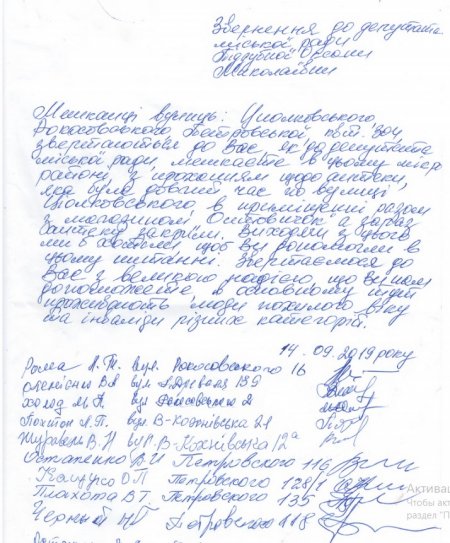 Звернення до депутата
міської ради
Підгубної Оксани
Миколаївни
Мешканці вулиць: Ціолковського,
Рокосовського Петровської
звертаються до Вас як до депутата
міської ради, мешкаєте в цьому мікро
районі, з проханням щодо аптеки,
яка була довгий час по вулиці
Ціолковського в приміщенні разом
з магазином Островичок а зараз
аптеку закрили. Виходячи з цього
ми б хотіли щоб Ви допомогли в
цьому питанні. Звертаємося до
Вас з великою надією, що Ви нам
допоможете в основному тут
проживають люди похилого віку
та інваліди різних категорій.
14.09.2019 року
Рома Л.М. вул. Рокосовського 16
В.А вул 139
Холод М.А. вул 2
Л.П. вул. В-Кохнівська 21
Журавель В.И вул. В-Кохнівська 12а
Остапенко В.И Петровского 116
О П Петровского 128/1
Плахота В.Т. Петровского 135
Черный Петровского 118
Активац
Чтобы акт
раздел "П